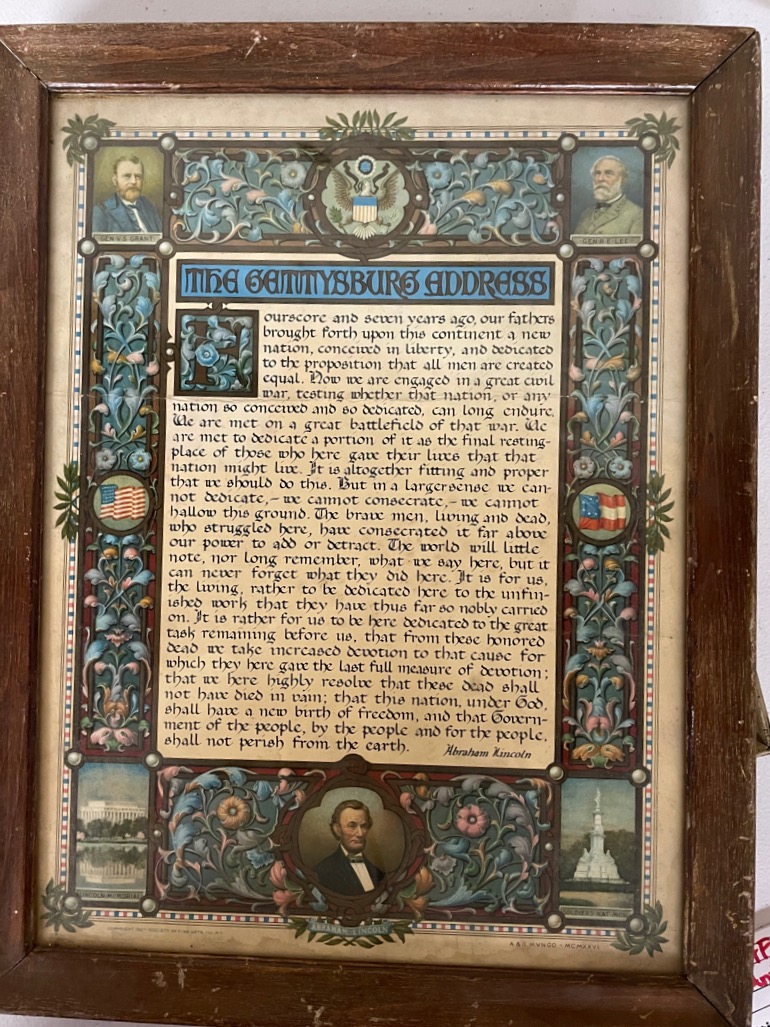 GEN. U.S. GRANT
GEN. R. E. LEE
THE GETTYSBURG ADDRESS
Fourscore and seven years ago, our fathers
brought forth upon this continent a new
nation, conceived in liberty, and dedicated
to the proposition that all men are created
equal. Now we are engaged in a great civil
war, testing whether that nation, or any
nation so conceived and so dedicated, can long endure.
We are met on a great battlefield of that war. We
are met to dedicate a portion of it as the final resting-
place of those who here gave their lives that that
nation might live. It is altogether fitting and proper
that we should do this. But in a larger sense we can-
not dedicate, - we cannot consecrate, - we cannot
hallow this ground. The brave men, living and dead,
who struggled here, have consecrated it far above
our power to add or detract. The world will little
note, nor long remember, what we say here, but it
can never forget what they did here. It is for us,
the living, rather to be dedicated here to the unfin-
ished work that they have thus far so nobly carried
on. It is rather for us to be here dedicated to the great
task remaining before us, that from these honored
dead we take increased devotion to that cause for
which they here gave the last full measure of devotion;
that we here highly resolve that these dead shall
not have died in vain; that this nation, under God,
shall have a new birth of freedom, and that Govern-
ment of the people, by the people and for the people,
shall not perish from the earth.
Abraham Lincoln
LINCOLN MEMORIAL
ABRAHAM LINCOLN
A & R MUNGO - MCMXXVI